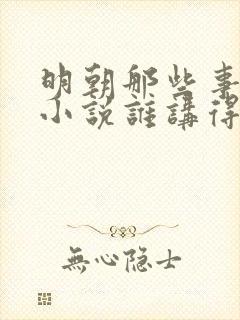 明朝那些事
小说誰講得
無心隐士